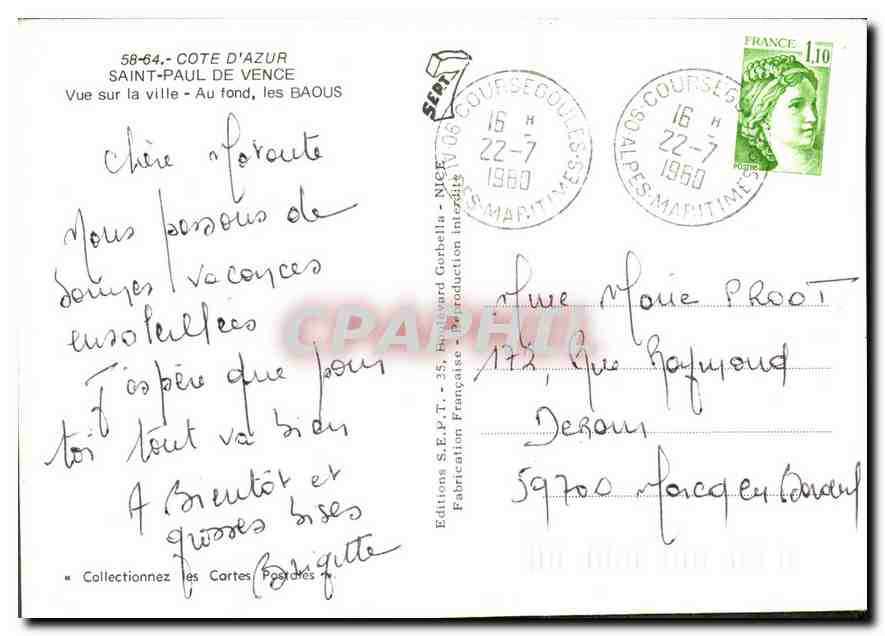 58-64.- COTE D'AZUR
SAINT-PAUL DE VENCE
Vue sur la ville - Au fond, les BAOUS
Chère
Nous passons de
bonnes vacances
ensoleillées
J'espère que pour
toi tout va bien
A Bientôt et
grosses bises
Brigitte
« Collectionnez les Cartes Postales ».
SEPT
7
Editions S.E.P.T. - 35, Boulevard Gorbella - NICE
Fabrication Française - Reproduction interdite
COURSEGOULES
16 H
22-7
1980
06 ALPES-MARITIMES
COURSEGOULES
16 H
22-7
1980
06 ALPES-MARITIMES
FRANCE 1,10
POSTES
Mme Marie PROOT
172, Rue Raymond
Derain
59700 Marcq en Baroeul
CPAPHIL